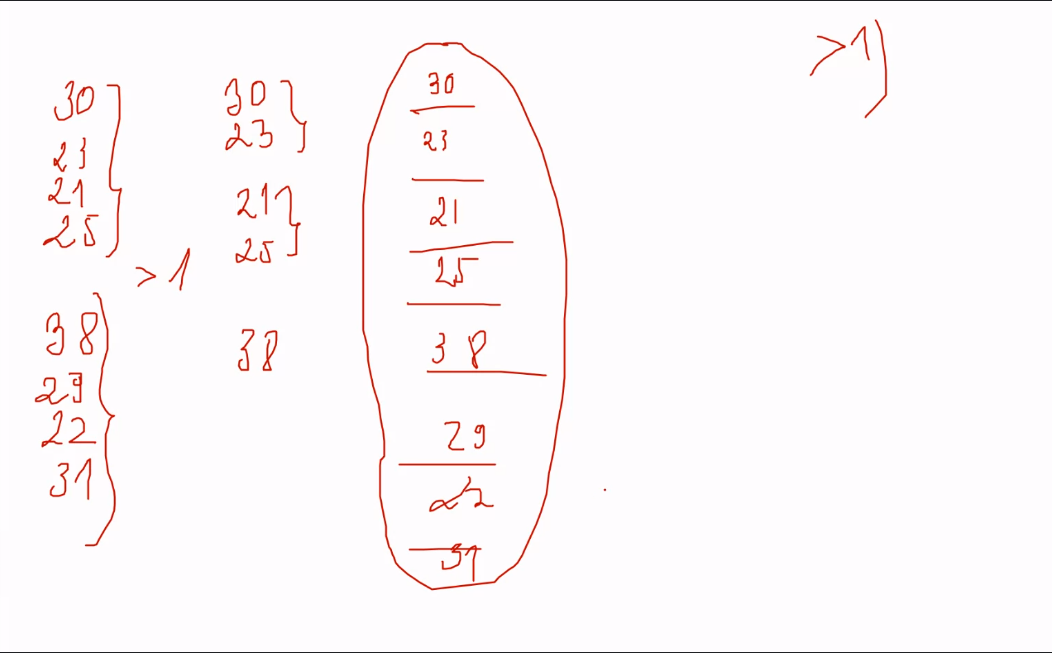 30
23
21
25
> 1
38
29
22
31
30
23
21
25
38
30
23
21
25
38
29
22
31
>1)